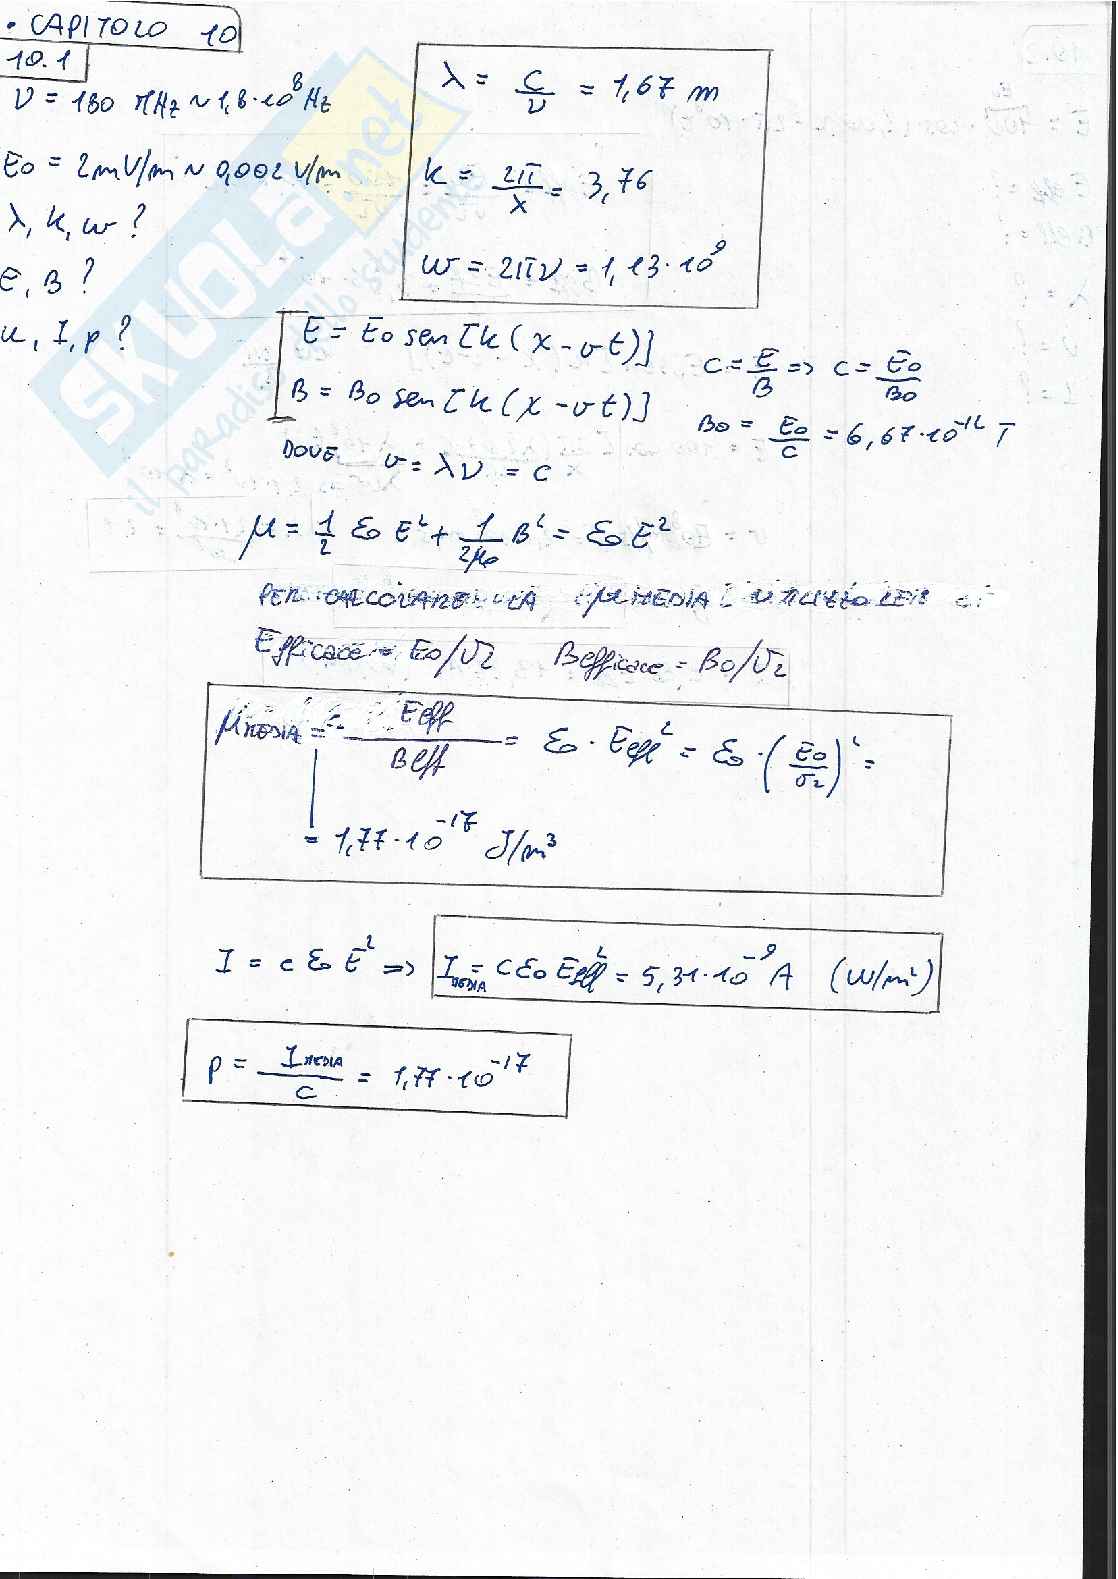 • CAPITOLO 10
10.1
ν = 180 MHz ~ 1,8·10⁸ Hz
E₀ = 2mV/m ~ 0,002 V/m
λ, k, ω ?
E, B ?
u, I, p ?
λ = c/ν = 1,67 m
k = 2π/λ = 3,76
ω = 2πν = 1,13·10⁹
E = E₀ sen [k(x-vt)]
B = B₀ sen [k(x-vt)]
DOVE v = λν = c
c = E/B => c = E₀/B₀
B₀ = E₀/c = 6,67·10⁻¹² T
μ = 1/2 ε₀ E² + 1/2μ₀ B² = ε₀ E²
PER CALCOLARE LA μ MEDIA UTILIZZO
Efficace = E₀/√2 Befficace = B₀/√2
μMEDIA = Eeff/Beff = ε₀ · Eeff² = ε₀ · (E₀/√2)² =
= 1,77·10⁻¹⁷ J/m³
I = c ε₀ E² => I MEDIA = c ε₀ Eeff² = 5,31·10⁻⁹ A (W/m²)
p = I MEDIA/c = 1,77·10⁻¹⁷
SKUOLA.net
il paradiso dello studente